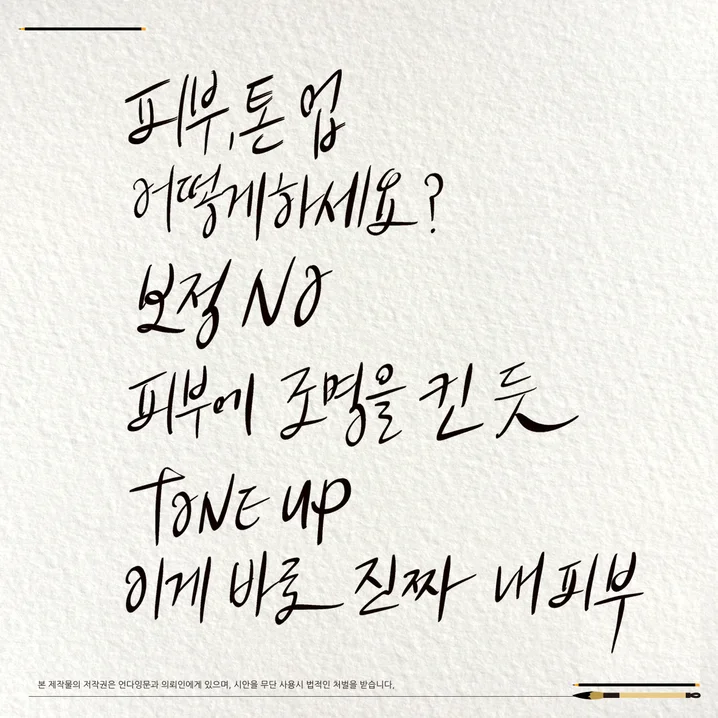 피부,톤 업
어떻게하세요?
보정 NO
피부에 조명을 킨 듯
TONE UP
이게 바로 진짜 내피부
본 제작물의 저작권은 언다잉문과 의뢰인에게 있으며, 시안을 무단 사용시 법적인 처벌을 받습니다.